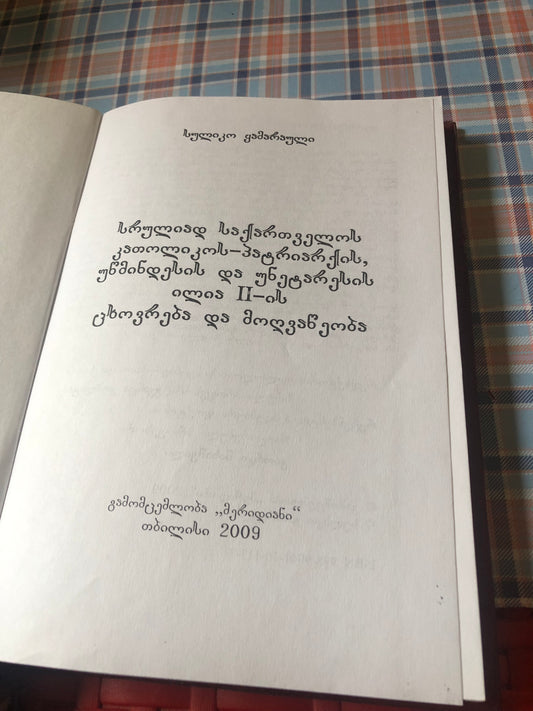 სულიკო ყამარაული
სრულიად საქართველოს
კათოლიკოს–პატრიარქის,
უწმინდესის და უნეტარესის
ილია II–ის
ცხოვრება და მოღვაწეობა
გამომცემლობა ,,მერიდიანი“
თბილისი 2009